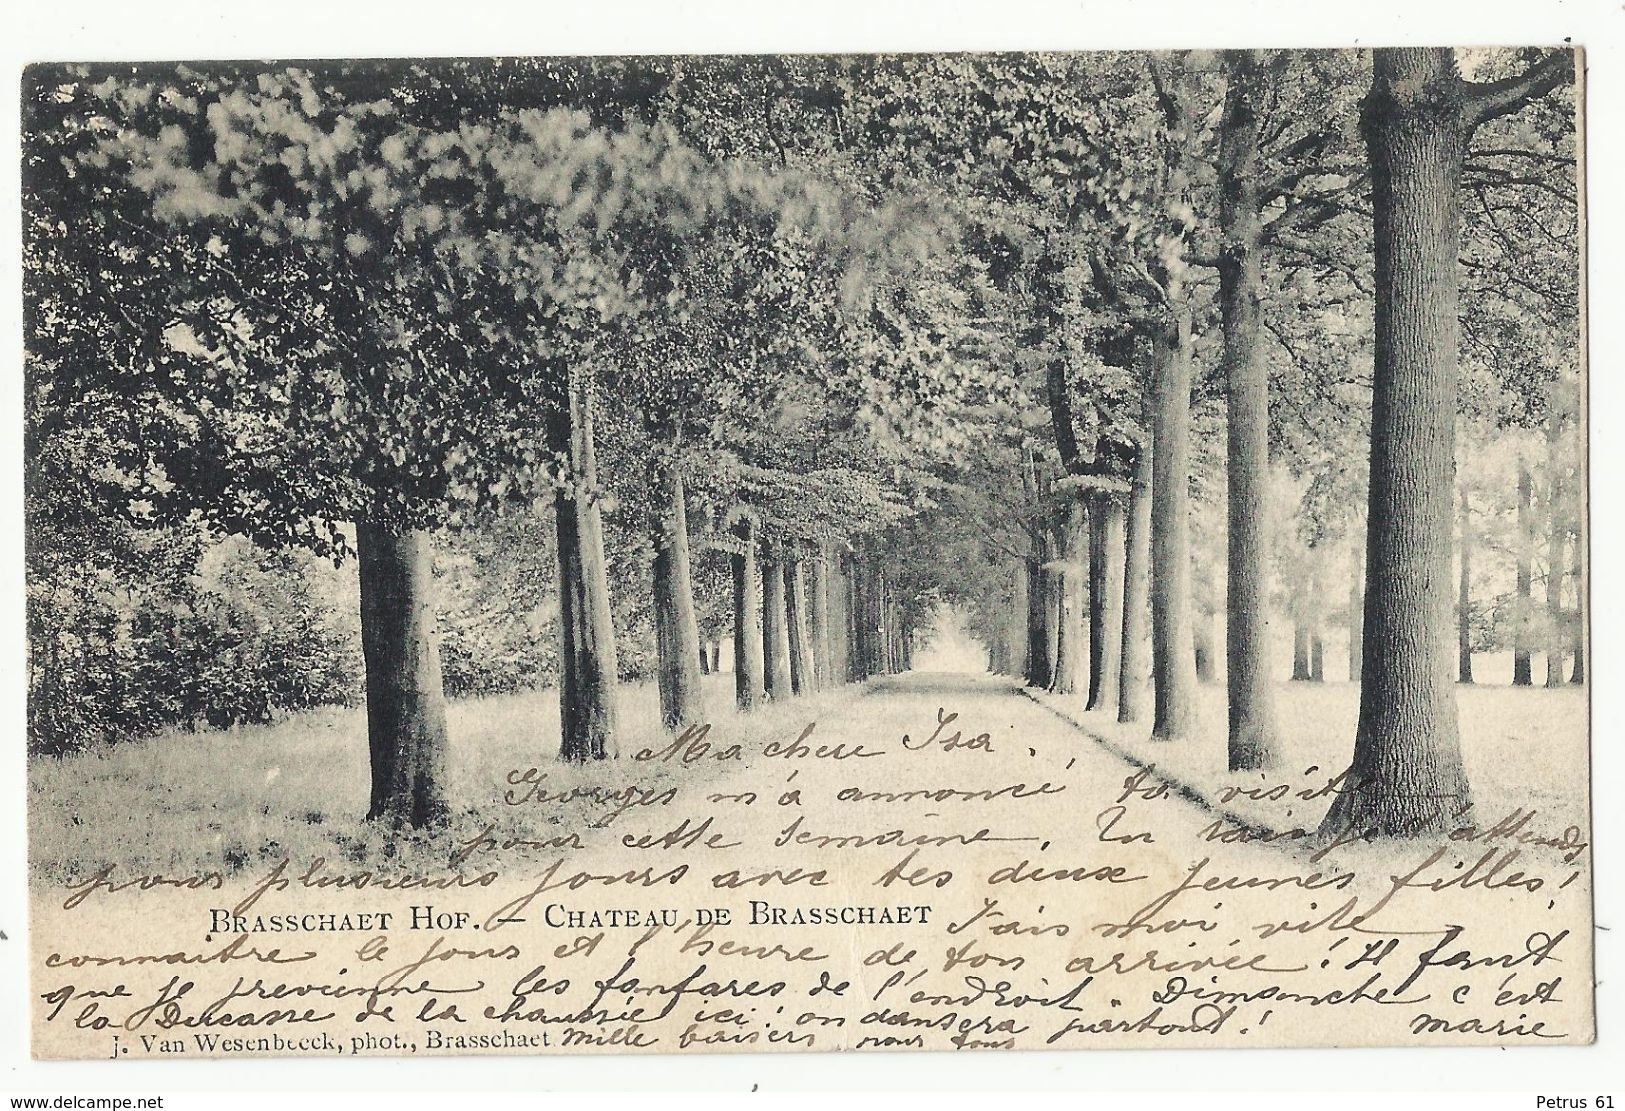 Ma chere Isa.
Georges m'a annoncé ta visite
pour cette semaine. Tu sais je t'attends
pour plusieurs jours avec tes deux jeunes filles!
BRASSCHAET HOF. — CHATEAU DE BRASSCHAET
Fais moi vite
connaitre le jour et l'heure de ton arrivée! Il faut
que je previenne les fanfares de l'endroit. Dimanche c'est
la Ducasse de la chaussée ici! on dansera partout!
marie
J. Van Wesenbeeck, phot., Brasschaet
Mille baisers pour tous
www.delcampe.net
Petrus 61